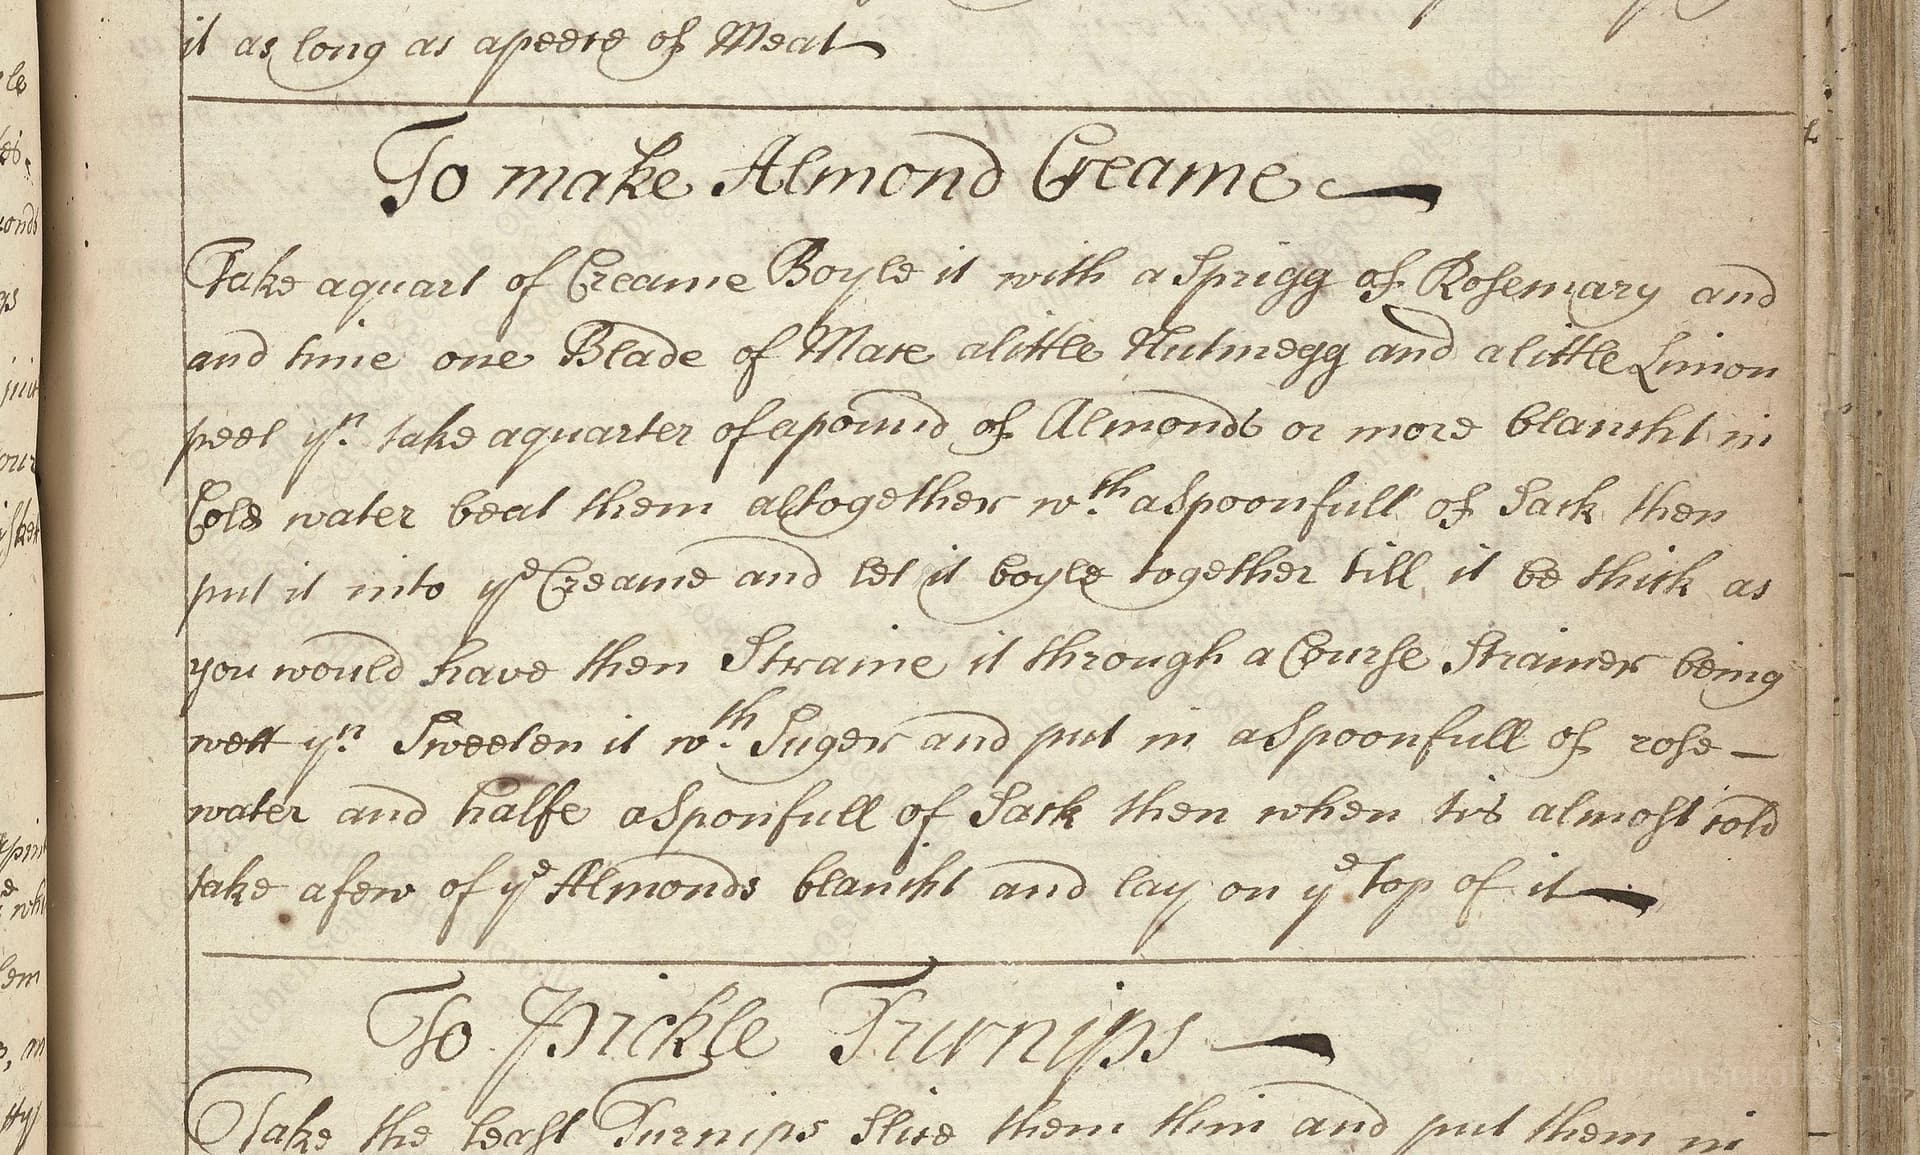 it as long as a peece of Meat
To make Almond Creame
Take a quart of Creame Boyle it with a Sprigg of Rosemary and
and time one Blade of Mace a little Nutmegg and a little Limon
peel yn take a quarter of a pound of Almonds or more blancht in
Cold water beat them altogether wth a Spoonfull of Sack then
put it into ye Creame and let it boyle together till it be thick as
you would have then Straine it through a Course Strainer being
wett yn Sweeten it wth Suger and put in a Spoonfull of rose
water and halfe a Sponfull of Sack then when tis almost cold
take a few of ye Almonds blancht and lay on ye top of it
To Pickle Turnips
Take the least Turnips Slice them thin and put them in